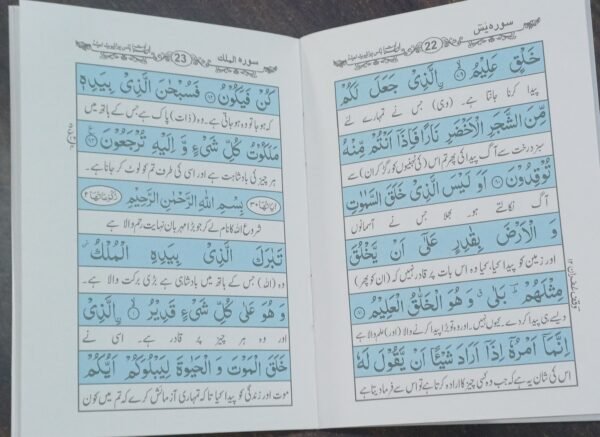 سورہ یٰسٓ
22
خَلْقٍ عَلِیْمُ ۙ﴿۷۹﴾ الَّذِیْ جَعَلَ لَكُمْ
پیدا کرنا جانتا ہے۔ (وہی) جس نے تمہارے لئے
مِّنَ الشَّجَرِ الْاَخْضَرِ نَارًا فَاِذَاۤ اَنْتُمْ مِّنْهُ
سبز درخت سے آگ پیدا کی پھر تم اس (کی ٹہنیوں کو رگڑ کر ان) سے
تُوْقِدُوْنَ ﴿۸۰﴾ اَوَ لَیْسَ الَّذِیْ خَلَقَ السَّمٰوٰتِ
آگ نکالتے ہو۔ بھلا جس نے آسمانوں
وَ الْاَرْضَ بِقٰدِرٍ عَلٰۤی اَنْ یَّخْلُقَ
اور زمین کو پیدا کیا، کیا وہ اس بات پر قادر نہیں کہ (ان کو پھر)
مِثْلَهُمْ ؕ بَلٰی ۗ وَ هُوَ الْخَلّٰقُ الْعَلِیْمُ ﴿۸۱﴾
ویسے ہی پیدا کر دے۔ کیوں نہیں۔ اور وہ تو بڑا پیدا کرنے والا (اور) علم والا ہے
اِنَّمَاۤ اَمْرُهٗۤ اِذَاۤ اَرَادَ شَیْئًا اَنْ یَّقُوْلَ لَهٗ
اس کی شان یہ ہے کہ جب وہ کسی چیز کا ارادہ کرتا ہے تو اس سے فرما دیتا ہے
سورہ الملک
23
كُنْ فَیَكُوْنُ ﴿۸۲﴾ فَسُبْحٰنَ الَّذِیْ بِیَدِهٖ
کہ ہو جا تو وہ ہو جاتی ہے۔ وہ (ذات) پاک ہے جس کے ہاتھ میں
مَلَكُوْتُ كُلِّ شَیْءٍ وَّ اِلَیْهِ تُرْجَعُوْنَ ﴿۸۳﴾
ہر چیز کی بادشاہت ہے اور اسی کی طرف تم کو لوٹ کر جانا ہے۔
اٰیاتها ۳۰ بِسْمِ اللّٰهِ الرَّحْمٰنِ الرَّحِیْمِ رکوعاتها ۲
شروع اللہ کا نام لے کر جو بڑا مہربان نہایت رحم والا ہے
تَبٰرَكَ الَّذِیْ بِیَدِهِ الْمُلْكُ
وہ (اللہ) جس کے ہاتھ میں بادشاہی ہے بڑی برکت والا ہے۔
وَ هُوَ عَلٰی كُلِّ شَیْءٍ قَدِیْرُ ۙ﴿۱﴾ الَّذِیْ
اور وہ ہر چیز پر قادر ہے۔ اسی نے
خَلَقَ الْمَوْتَ وَ الْحَیٰوةَ لِیَبْلُوَكُمْ اَیُّكُمْ
موت اور زندگی کو پیدا کیا تاکہ تمہاری آزمائش کرے کہ تم میں کون